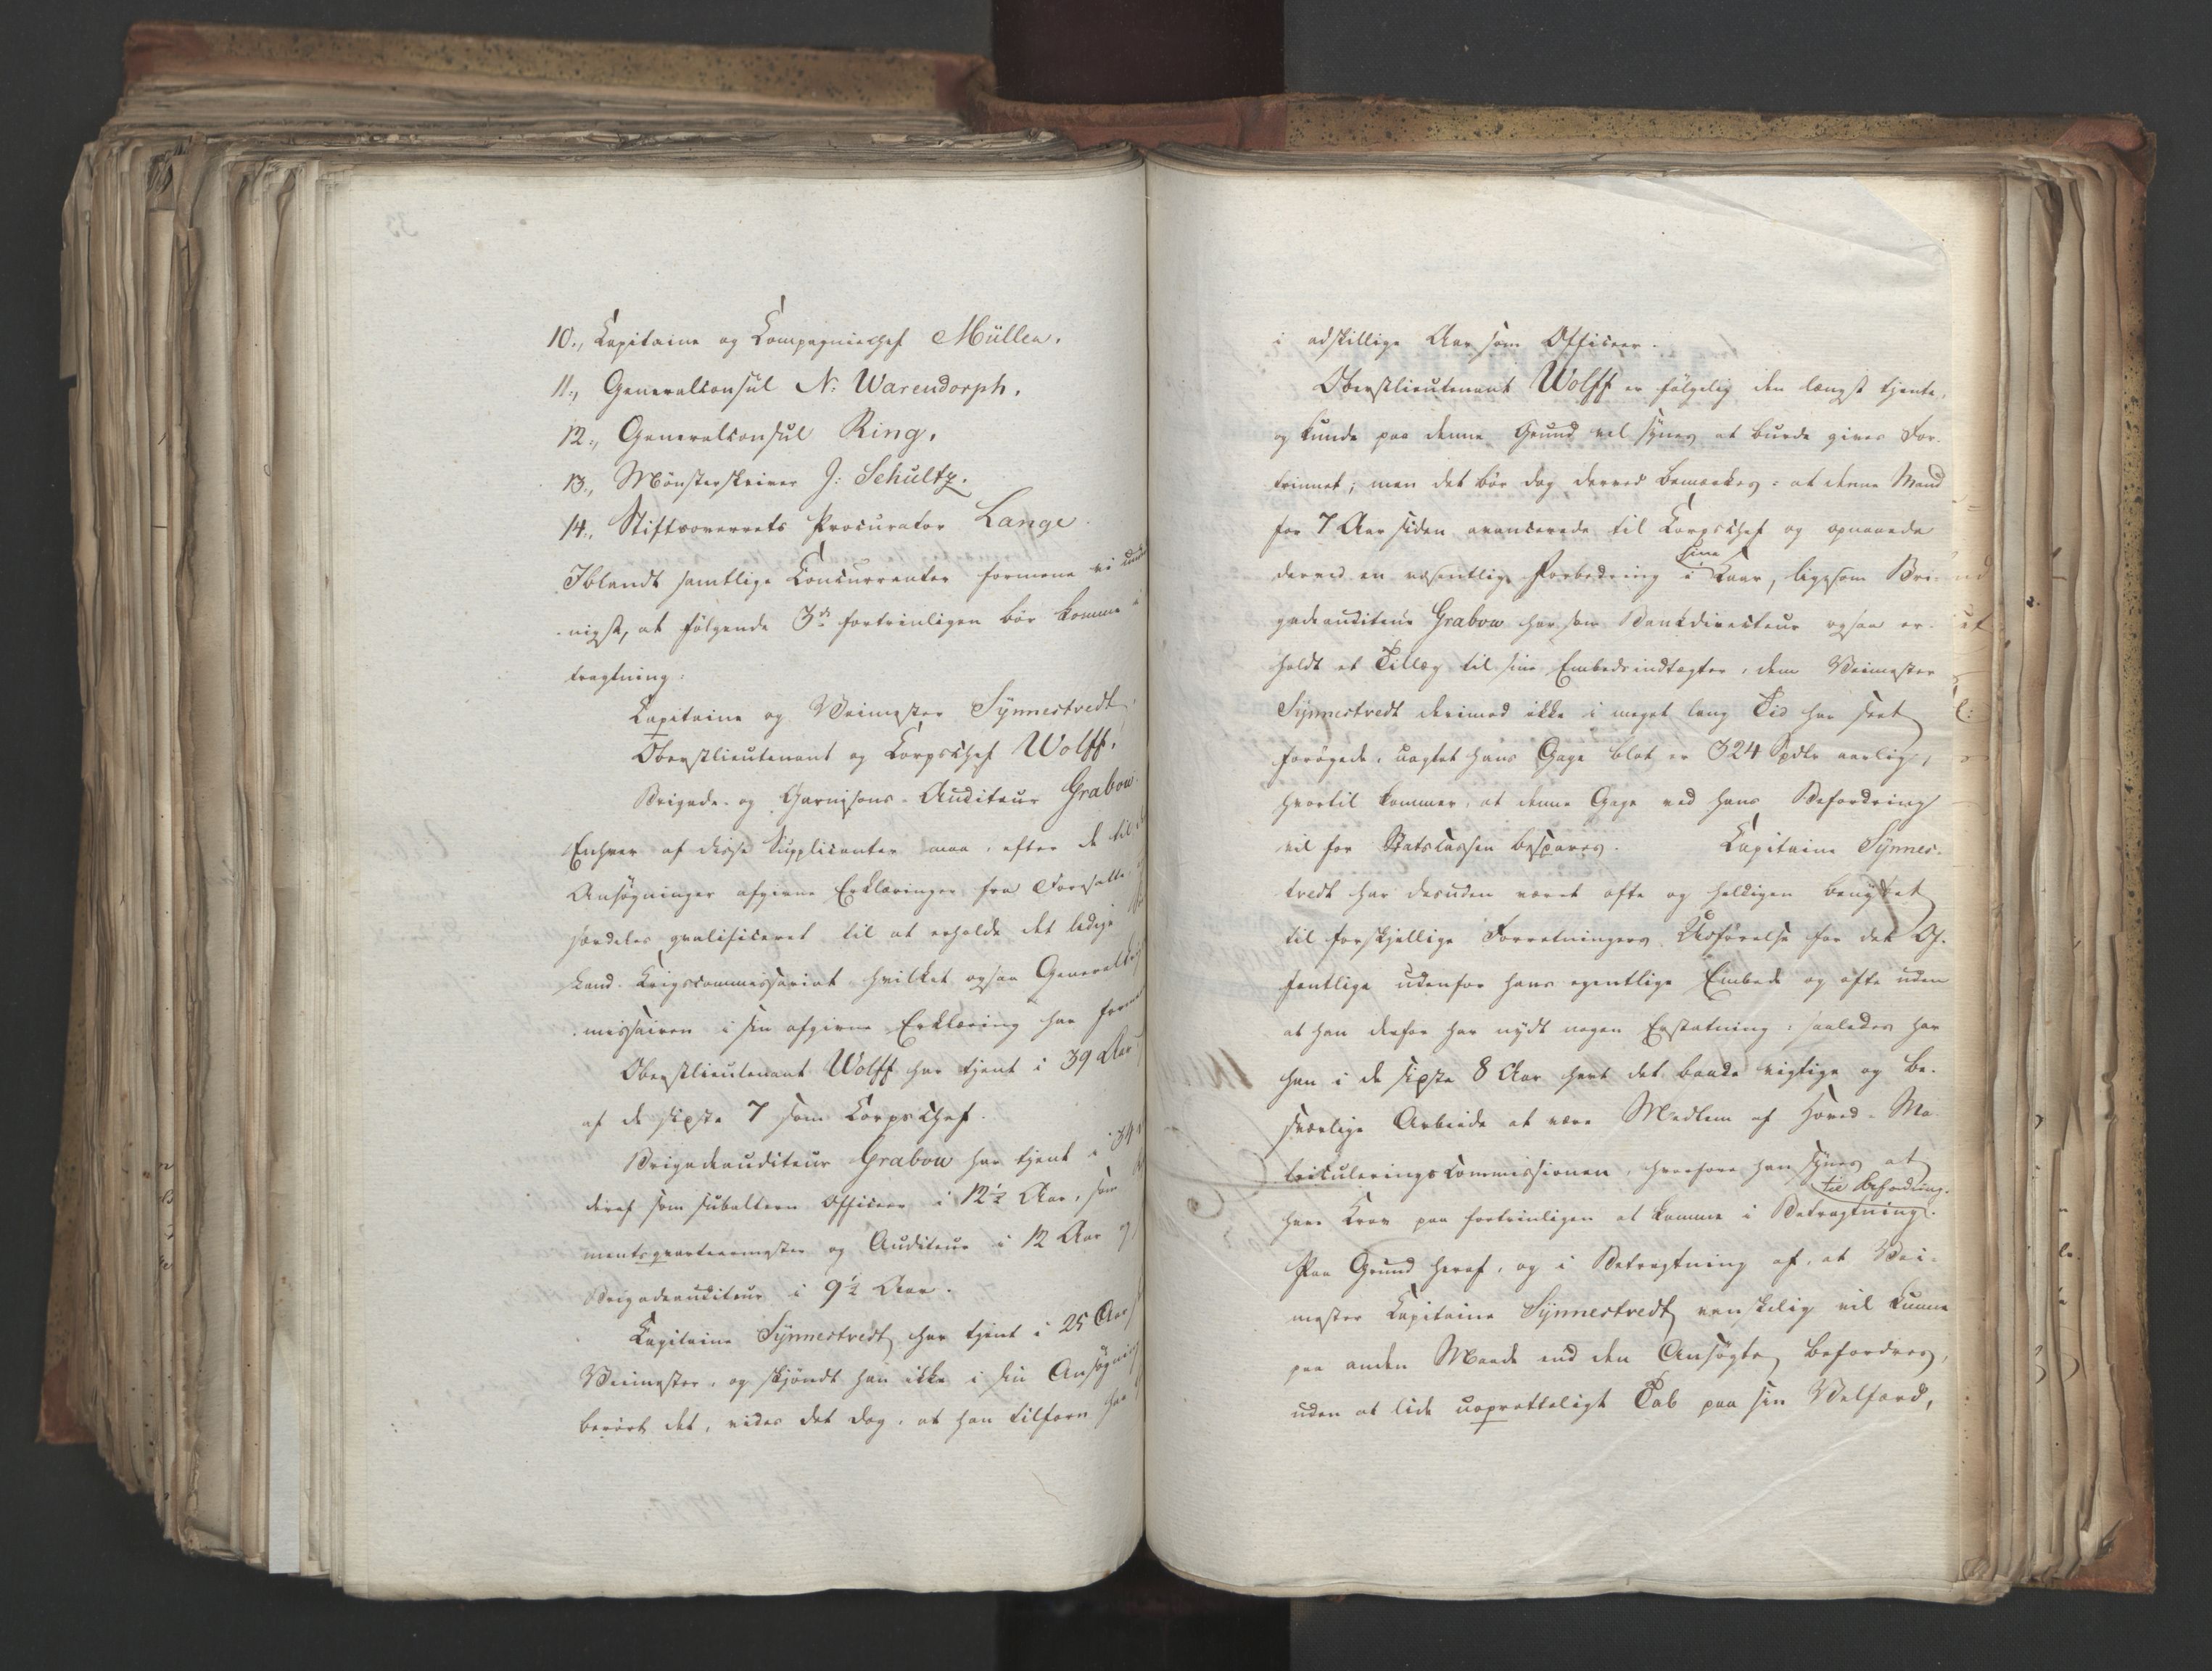 10., Capitaine og Compagniechef Müller.
11., Generalconsul N: Warendorph.
12., Generalconsul Ring.
13., Mönsterskriver J: Schultz.
14., Stiftsoverrets Procurator Lange.
Iblandt samtlige Concurrenter formene vi
nigst, at fölgende 3de fortrinligen bör komme i
tragtning:
Capitaine og Veimester Synnestvedt,
Oberstlieutenant og Corpschef Wolff.
Brigade- og Garnisons-Auditeur Grabow
Enhver af disse Supplicanter maa, efter de til
Ansögninger afgivne Erklæringer fra Foresatte
særdeles qvalificeret til at erholde det ledige
Land-Krigscommissariat hvilket ogsaa
missairen i sin afgivne Erklæring har
Oberstlieutenant Wolff har tjent i 39 Aar
af de sidste 7 som Corpschef.
Brigadeauditeur Grabow har tjent i 34
deraf som subaltern Officeer i 12½ Aar, som
mentsqvarteermester og Auditeur i 12 Aar og
Brigadeauditeur i 9½ Aar.
Capitaine Synnestvedt har tjent i 25 Aar
Veimester, og skjöndt han ikke i sin Ansögning
berört det, vides det dog, at han tilforn har
i adskillige Aar som Officeer.
Oberstlieutenant Wolff er fölgelig den længst tjente,
og kunde paa denne Grund vel synes at burde gives For-
trinnet; men det bör dog derved bemærkes: at denne Mand
for 7 Aar siden avancerede til Corpschef og opnaaede
derved en væsentlig Forbedring i sine Kaar, ligesom Bri-
gadeauditeur Grabow har som Bankdirecteur ogsaa er-
holdt et Tillæg til sine Embedsindtægter, dem Veimester
Synnestvedt derimod ikke i meget lang Tid har seet
forögede, uagtet hans Gage blot er 324 Spdlr aarlig,
hvortil kommer, at denne Gage ved hans Befordring
vil for Statscassen besparес. Capitaine Synnes-
tvedt har desuden været ofte og heldigen benyttet
til forskjellige Forretningers Udförelse for det Of-
fentlige udenfor hans egentlige Embede og ofte uden
at han derfor har nydt nogen Erstatning: saaledes har
han i de sidste 8 Aar havt det baade vigtige og be-
sværlige Arbeide at være Medlem af Hoved-Ma-
triculeringscommissionen, hvorfore han synes at
have Krav paa fortrinligen at komme i Betragtning til Befordring.
Paa Grund heraf, og i Betragtning af, at Vei-
mester Capitaine Synnestvedt vanskelig vil kunne
paa anden Maade end den Ansögte befordres,
uden at lide uopretteligt Tab paa sin Velfærd,